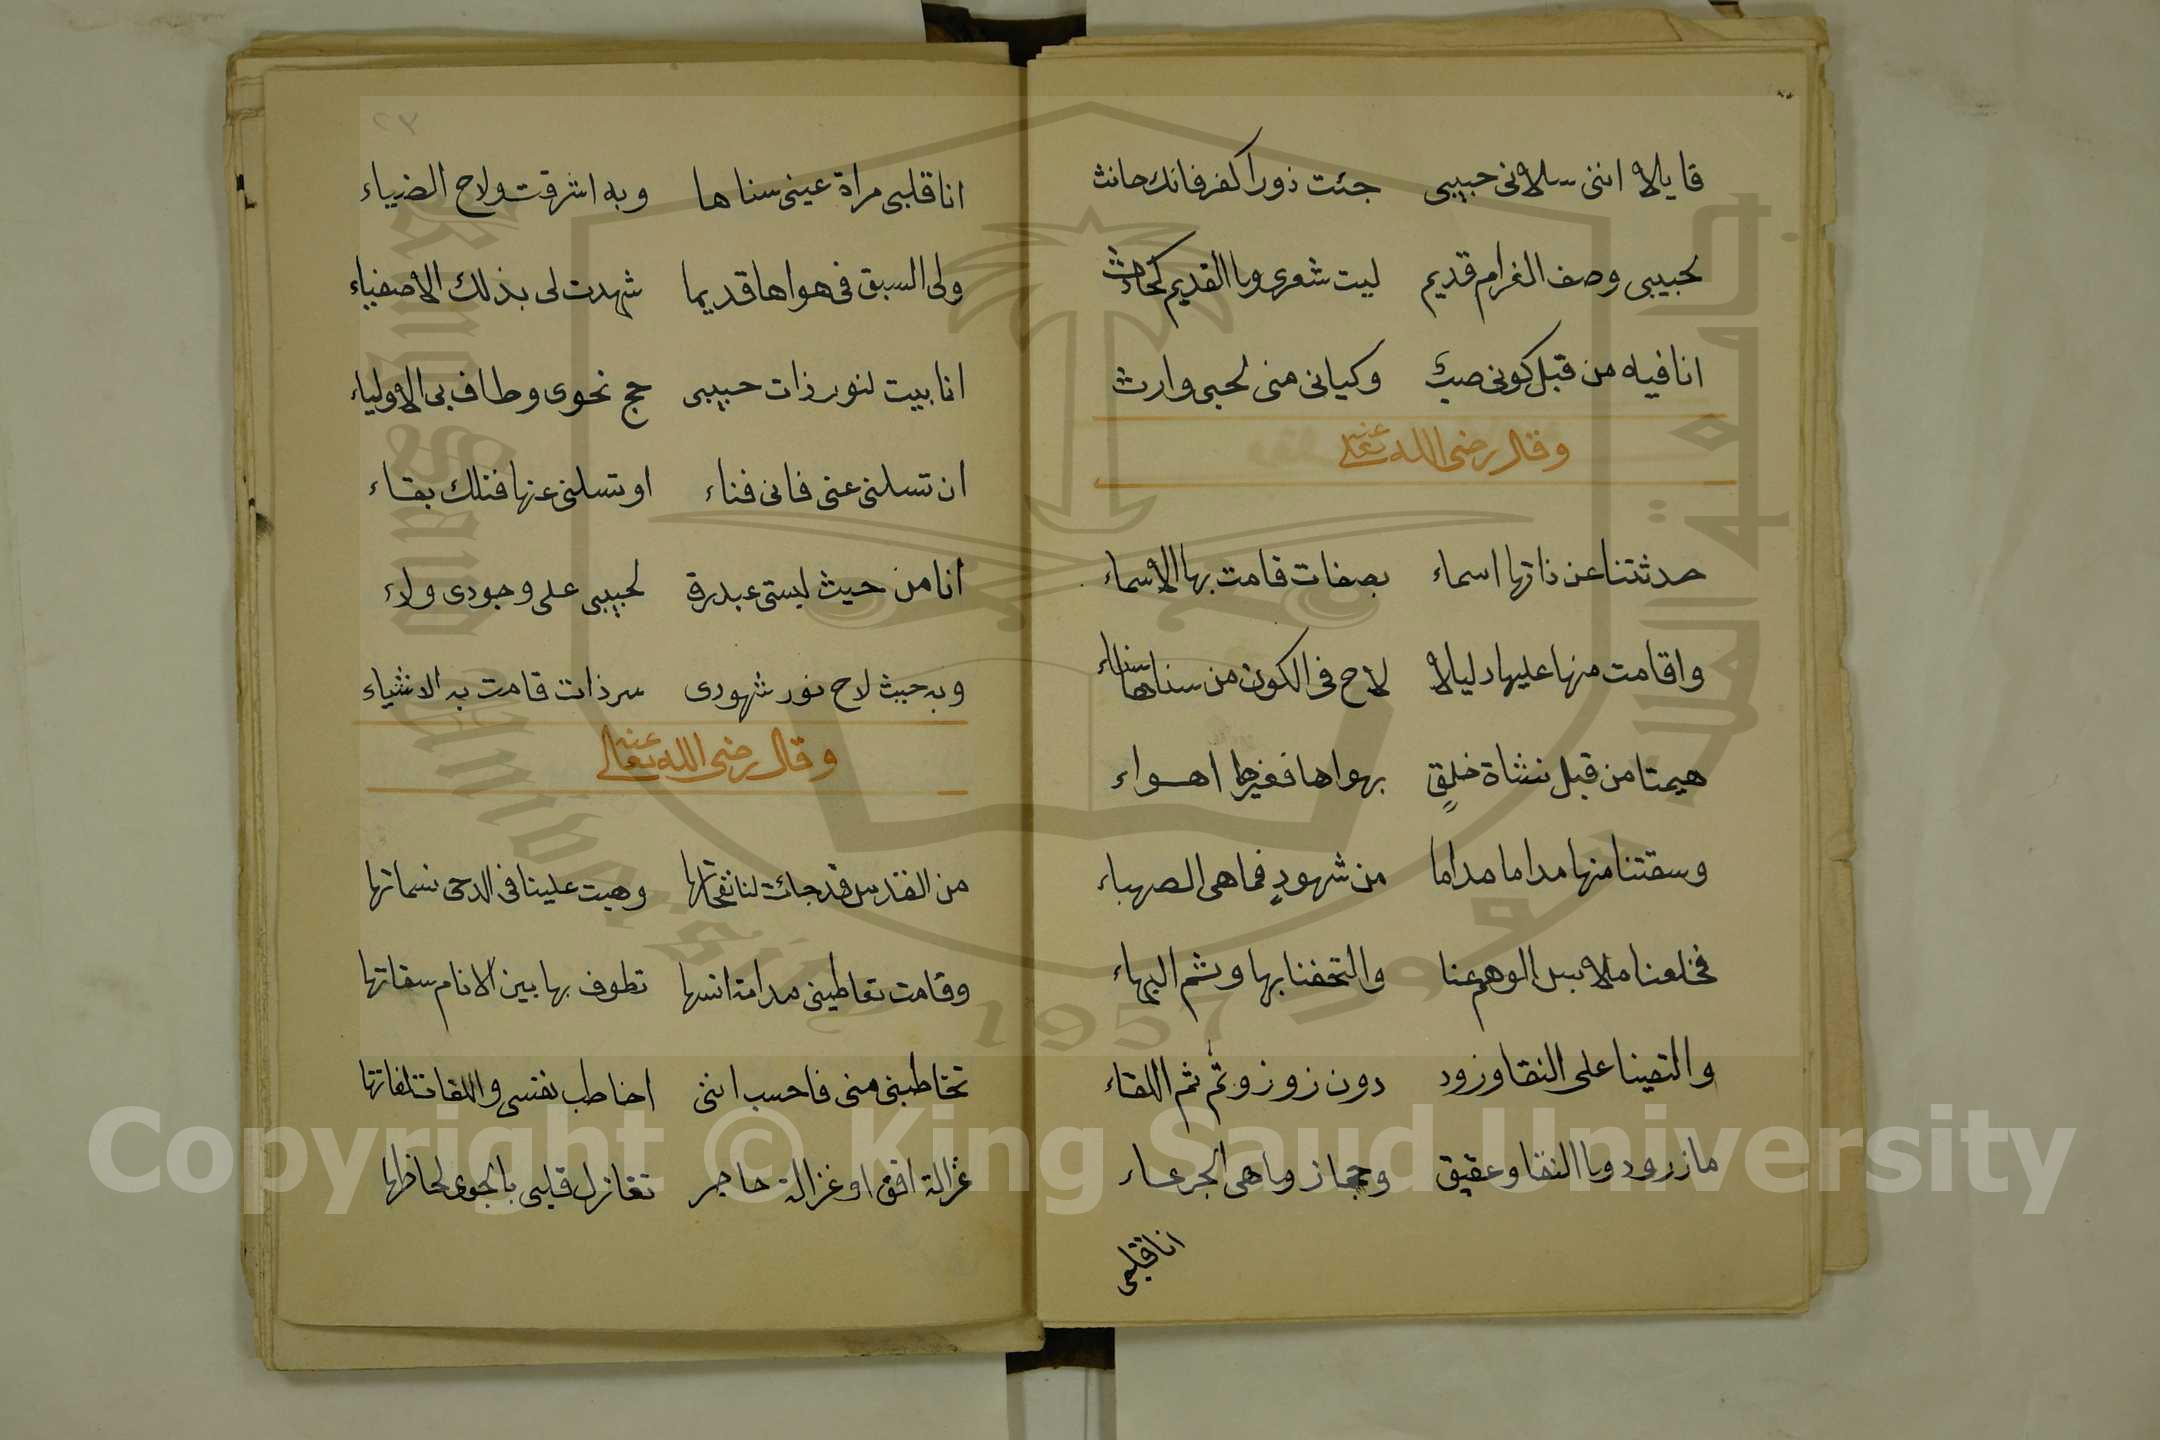 قايلا انني سلاني حبيبي جئت زورا كفر فانك حانث
لحبيبي وصف الغرام قديم ليت شعري وما القديم كحادث
انا فيه من قبل كوني صب وكياني مني لحبي وارث
وقال رضى الله تعالى عنه
حدثتنا عن ذاتها اسماء بصفات قامت بها الاسماء
واقامت منها عليها دليلا لاح في الكون من سناها سناء
هيمتنا من قبل نشاة خلق بهواها فغيرها اهواء
وسقتنا منها مداما مداما من شهود فما هي الصهباء
فخلعنا ملابس الوهم عنا والتحفنا بها وشم البهاء
والتقينا على النقا وزرود دون زور وثم ثم اللقاء
ما زرود وما النقا وعقيق وحجاز وما هي الجرعاء
انا قلبي
٢٣
انا قلبي مراة عيني سناها وبه اشرقت ولاح الضياء
ولي السبق في هواها قديما شهدت لي بذلك الاصفياء
انا بيت لنور ذات حبيبي حج نحوى وطاف بي الاولياء
ان تسلني عني فاني فناء او تسلني عنها فتلك بقاء
انا من حيث ليستي عبد رق لحبيبي على وجودى ولاء
وبه حيث لاح نور شهودى سر ذات قامت به الاشياء
وقال رضى الله تعالى عنه
من القدس قد جائت لنا نفحاتها وهبت علينا في الدجى نسماتها
وقامت تعاطيني مدامة انسها تطوف بها بين الانام سقاتها
تخاطبني مني فاحسب انني اخاطب نفسي واللقات لفاتها
غزالة افق او غزالة حاجر تغازل قلبي بالجوى لحاظها
Copyright © King Saud University
King Saud University
جامعة الملك سعود
1957